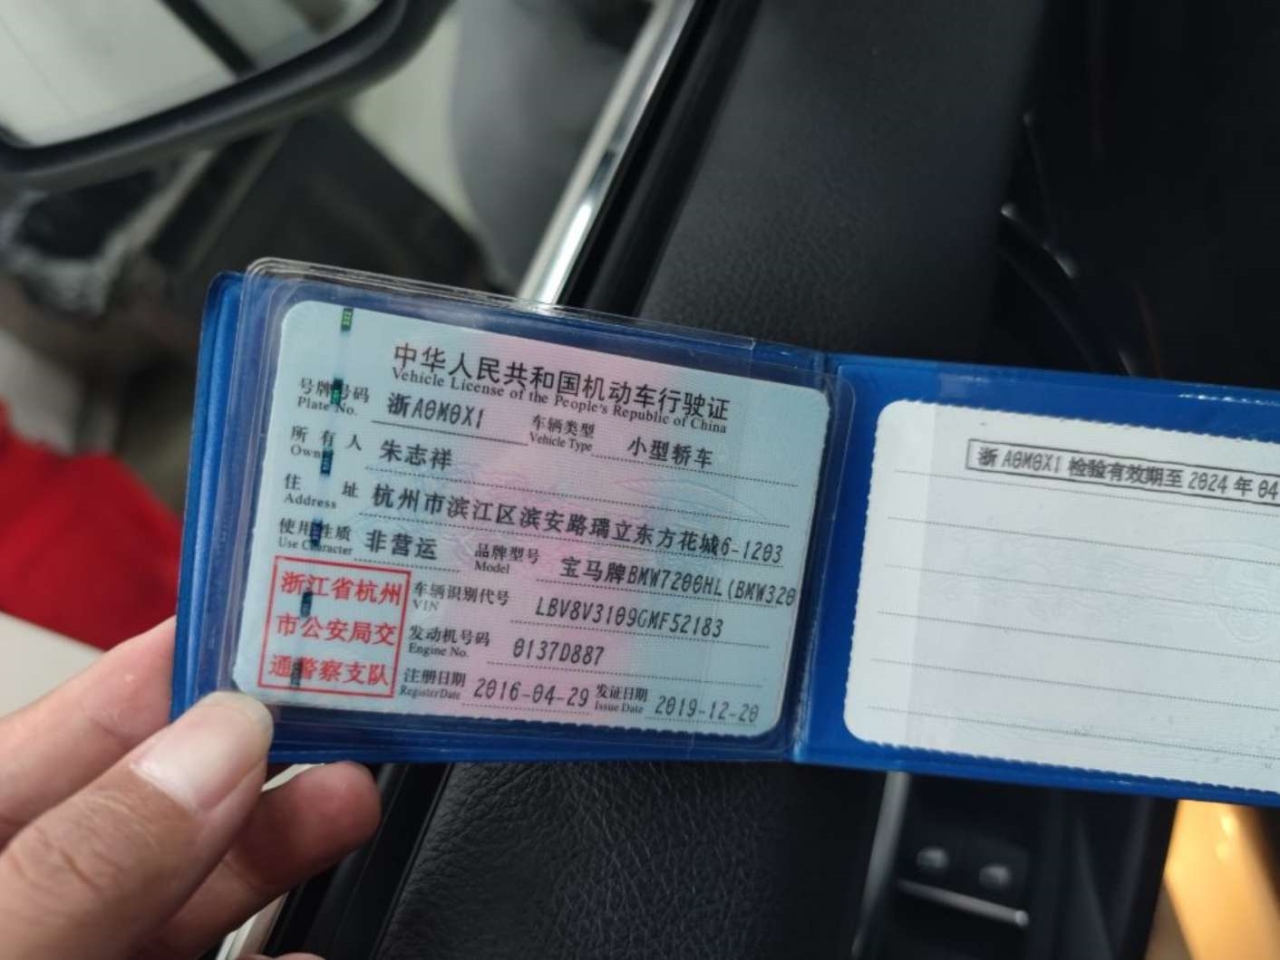 中华人民共和国机动车行驶证
Vehicle License of the People's Republic of China
号牌号码 浙A0M0X1 车辆类型 小型轿车
Plate No. Vehicle Type
所有人 朱志祥
Owner
住址 杭州市滨江区滨安路瑀立东方花城6-1203
Address
使用性质 非营运 品牌型号 宝马牌BMW7200HL(BMW320
Use Character Model
浙江省杭州
市公安局交
通警察支队
车辆识别代号 LBV8V3109GMF52183
VIN
发动机号码 0137D887
Engine No.
注册日期 2016-04-29 发证日期 2019-12-20
Register Date Issue Date
浙A0M0X1检验有效期至2024年04